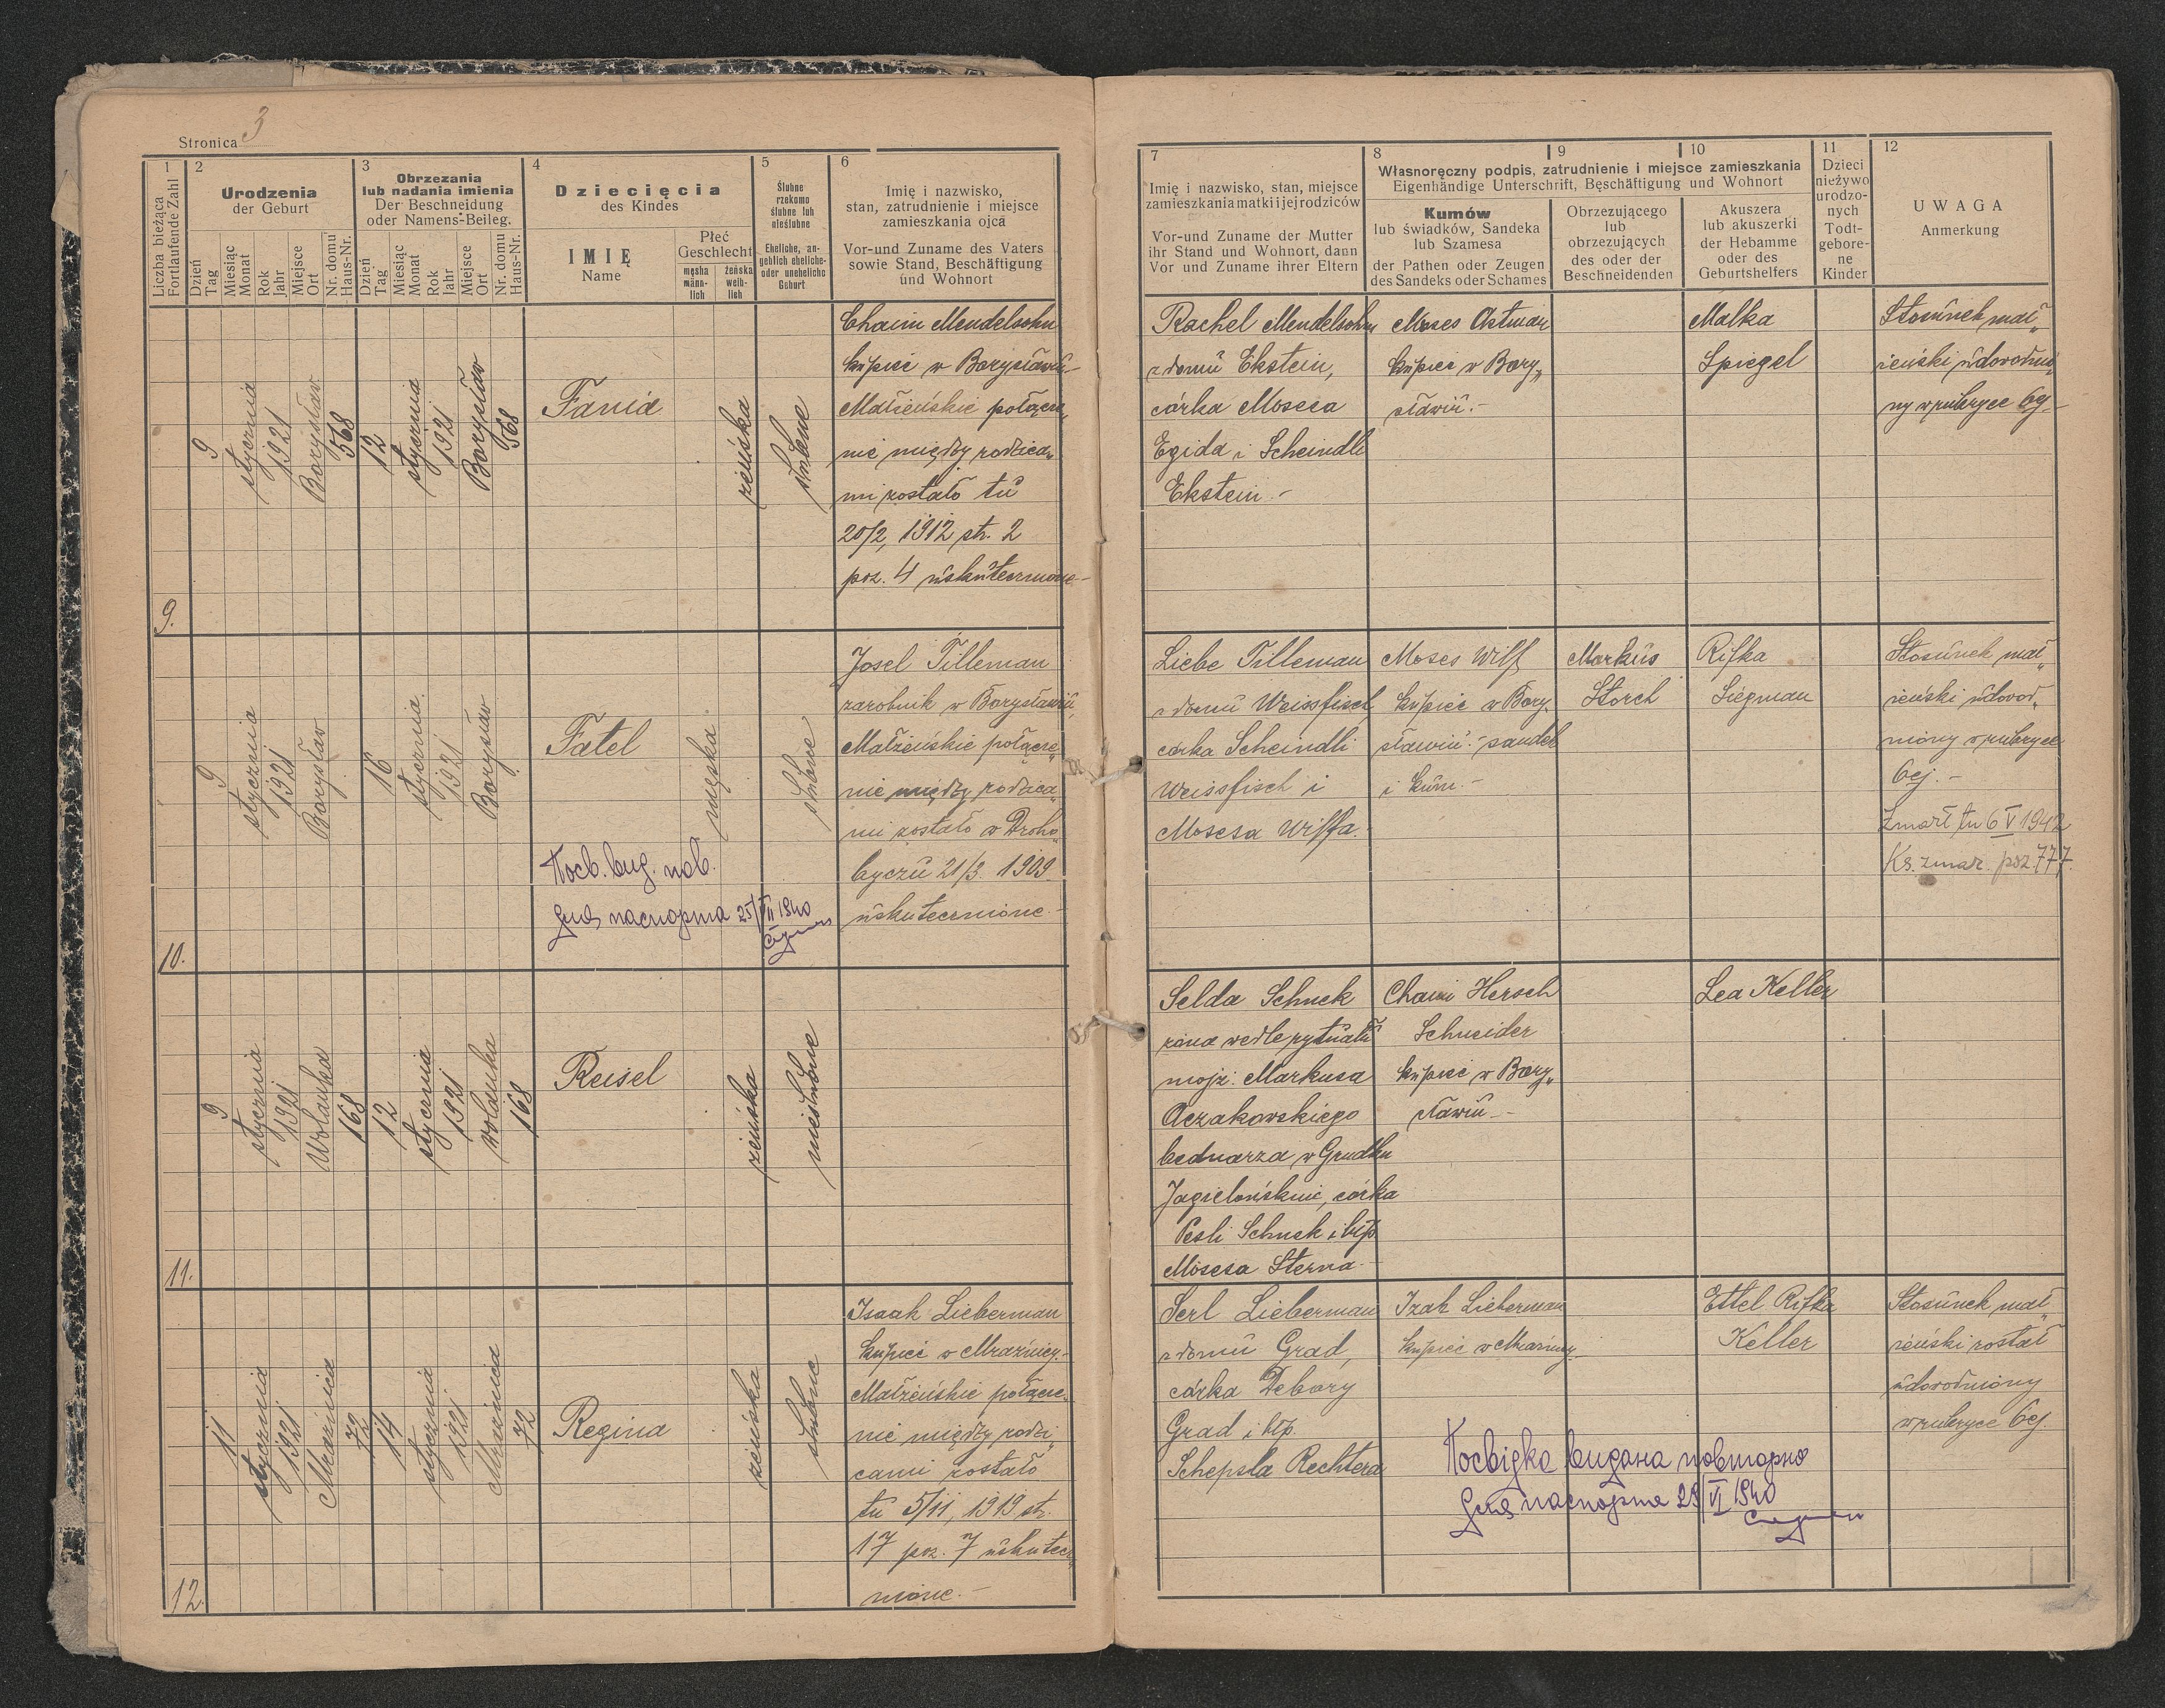 Stronica 3
1
Liczba bieżąca
Fortlaufende Zahl
2
Urodzenia
der Geburt
Dzień
Tag
Miesiąc
Monat
Rok
Jahr
Miejsce
Ort
Nr. domu
Haus-Nr.
3
Obrzezania
lub nadania imienia
Der Beschneidung
oder Namens-Beileg.
Dzień
Tag
Miesiąc
Monat
Rok
Jahr
Miejsce
Ort
Nr. domu
Haus-Nr.
4
Dziecięcia
des Kindes
IMIĘ
Name
Płeć
Geschlecht
męska
männ-
lich
żeńska
weib-
lich
5
Ślubne
rzekomo
ślubne lub
nieślubne
Eheliche, an-
geblich eheliche-
oder uneheliche
Geburt
6
Imię i nazwisko,
stan, zatrudnienie i miejsce
zamieszkania ojca
Vor-und Zuname des Vaters
sowie Stand, Beschäftigung
und Wohnort
7
Imię i nazwisko, stan, miejsce
zamieszkania matki i jej rodziców
Vor-und Zuname der Mutter
ihr Stand und Wohnort, dann
Vor und Zuname ihrer Eltern
8
9
10
Własnoręczny podpis, zatrudnienie i miejsce zamieszkania
Eigenhändige Unterschrift, Beschäftigung und Wohnort
Kumów
lub świadków, Sandeka
lub Szamesa
der Pathen oder Zeugen
des Sandeks oder Schames
Obrzezującego
lub
obrzezujących
des oder der
Beschneidenden
Akuszera
lub akuszerki
der Hebamme
oder des
Geburtshelfers
11
Dzieci
nieżywo
urodzo-
nych
Todt-
gebore-
ne
Kinder
12
UWAGA
Anmerkung
9.
9
stycznia
1921
Borysław
568
12
stycznia
1921
Borysław
568
Fania
żeńska
ślubne
Chaim Mendelsohn
kupiec w Borysławiu.-
Małżeńskie połącze„
nie między rodzica„
mi zostało tu
20/2, 1912 str. 2
poz. 4 uskutecznione-
Rachel Mendelsohn
z domu Ekstein,
córka Moseca
Egida i Scheindli
Ekstein.-
Moses Astman
kupiec w Bory„
sławiu.-
Malka
Spiegel
Stosunek mał„
żeński udowodnio„
ny w rubryce 6ej-
10.
9
stycznia
1921
Borysław
16
stycznia
1921
Borysław
Fatel
męska
ślubne
Josel Tilleman
zarobnik w Borysławiu,
Małżeńskie połącze„
nie między rodzica„
mi zostało w Droho„
byczu 21/3. 1909
uskutecznione.-
Посв. вид. пов.
для паспорта 25/VII 1940
Liebe Tilleman
z domu Weissfisch,
córka Scheindli
Weissfisch i
Mosesa Wilfa.
Moses Wilf
kupiec w Bory„
sławiu.- sandek
i kum.-
Markus
Storch
Rifka
Siegman
Stosunek mał„
żeński udowod„
niony w rubryce
6ej.-
Zmarł tu 6 V 1942
Ks. zmar. poz. 777.
11.
9
stycznia
1921
Wolanka
168
12
stycznia
1921
Wolanka
168
Reisel
żeńska
nieślubne
Selda Schnek
żona wedle rytuału
mojż. Markusa
Oczakowskiego
bednarza w Grudku
Jagielońskim, córka
Pesli Schnek i btp.
Mosesa Sterna.-
Chaim Hersch
Schneider
kupiec w Bory„
sławiu.-
Lea Keller
12.
11
stycznia
1921
Mraźnica
72
14
stycznia
1921
Mraźnica
72
Regina
żeńska
ślubne
Isaak Lieberman
kupiec w Mraźnicy.-
Małżeńskie połącze„
nie między rodzi„
cami zostało
tu 5/11, 1919 str.
17 poz. 7 uskutecz„
nione.-
Serl Lieberman
z domu Grad,
córka Debory
Grad i btp.
Schepsla Rechtera
Izak Lieberman
kupiec w Mraźnicy.
Ettel Rifka
Keller
Stosunek mał„
żeński został
udowodniony
w rubryce 6ej.
Посвідка видана повторно
для паспорта 29/VI 1940